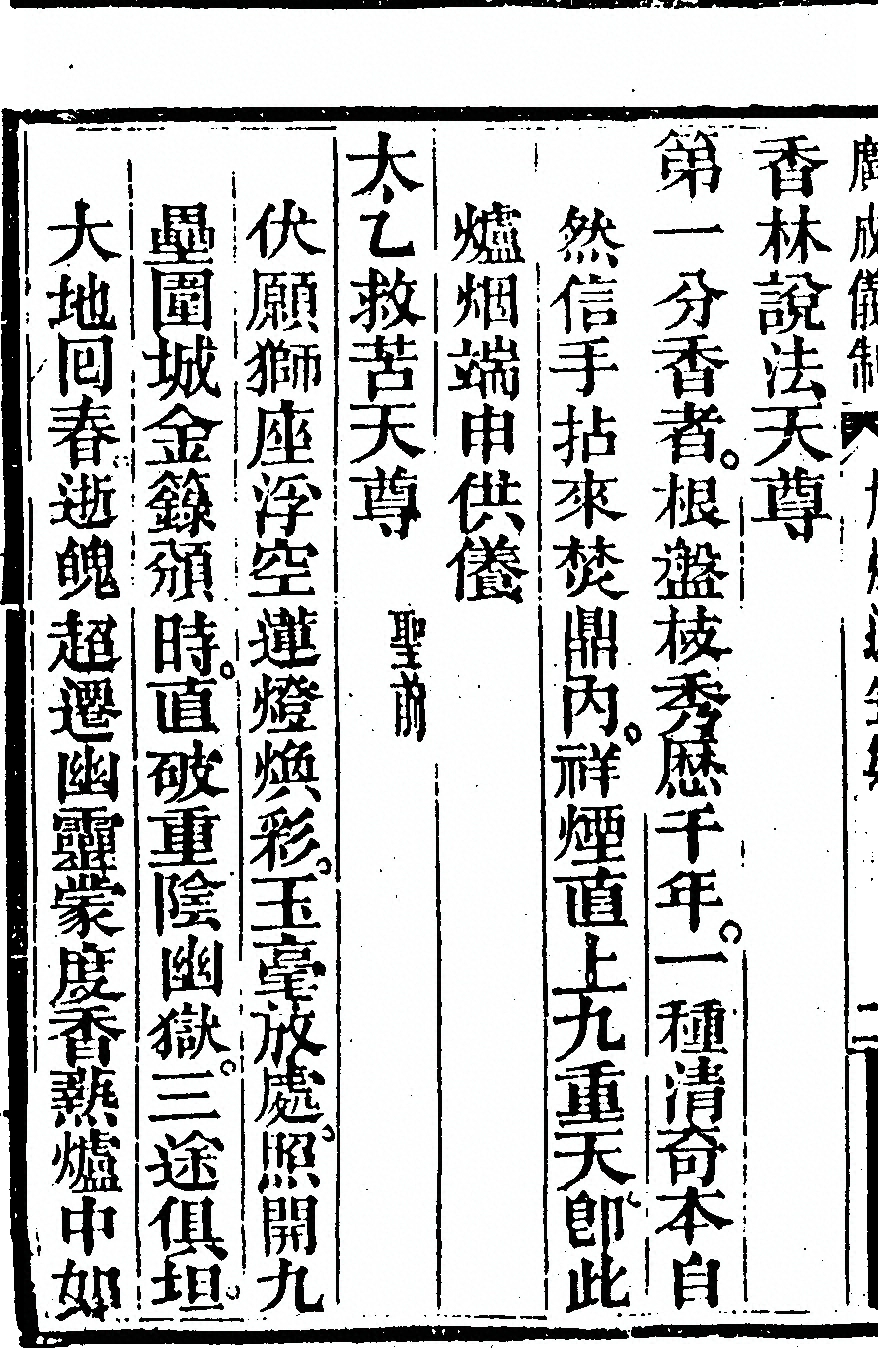 廣成儀制
二
香林說法天尊
第一分香者根盤枝秀歷千年一種清奇本自
然信手拈來焚鼎內祥煙直上九重天即此
爐烟端申供養
太乙救苦天尊 聖前
伏願獅座浮空蓮燈煥彩玉毫放處照開九
壘圍城金籙頒時直破重陰幽獄三途俱坦
大地回春逝魄超遷幽靈蒙度香爇爐中如